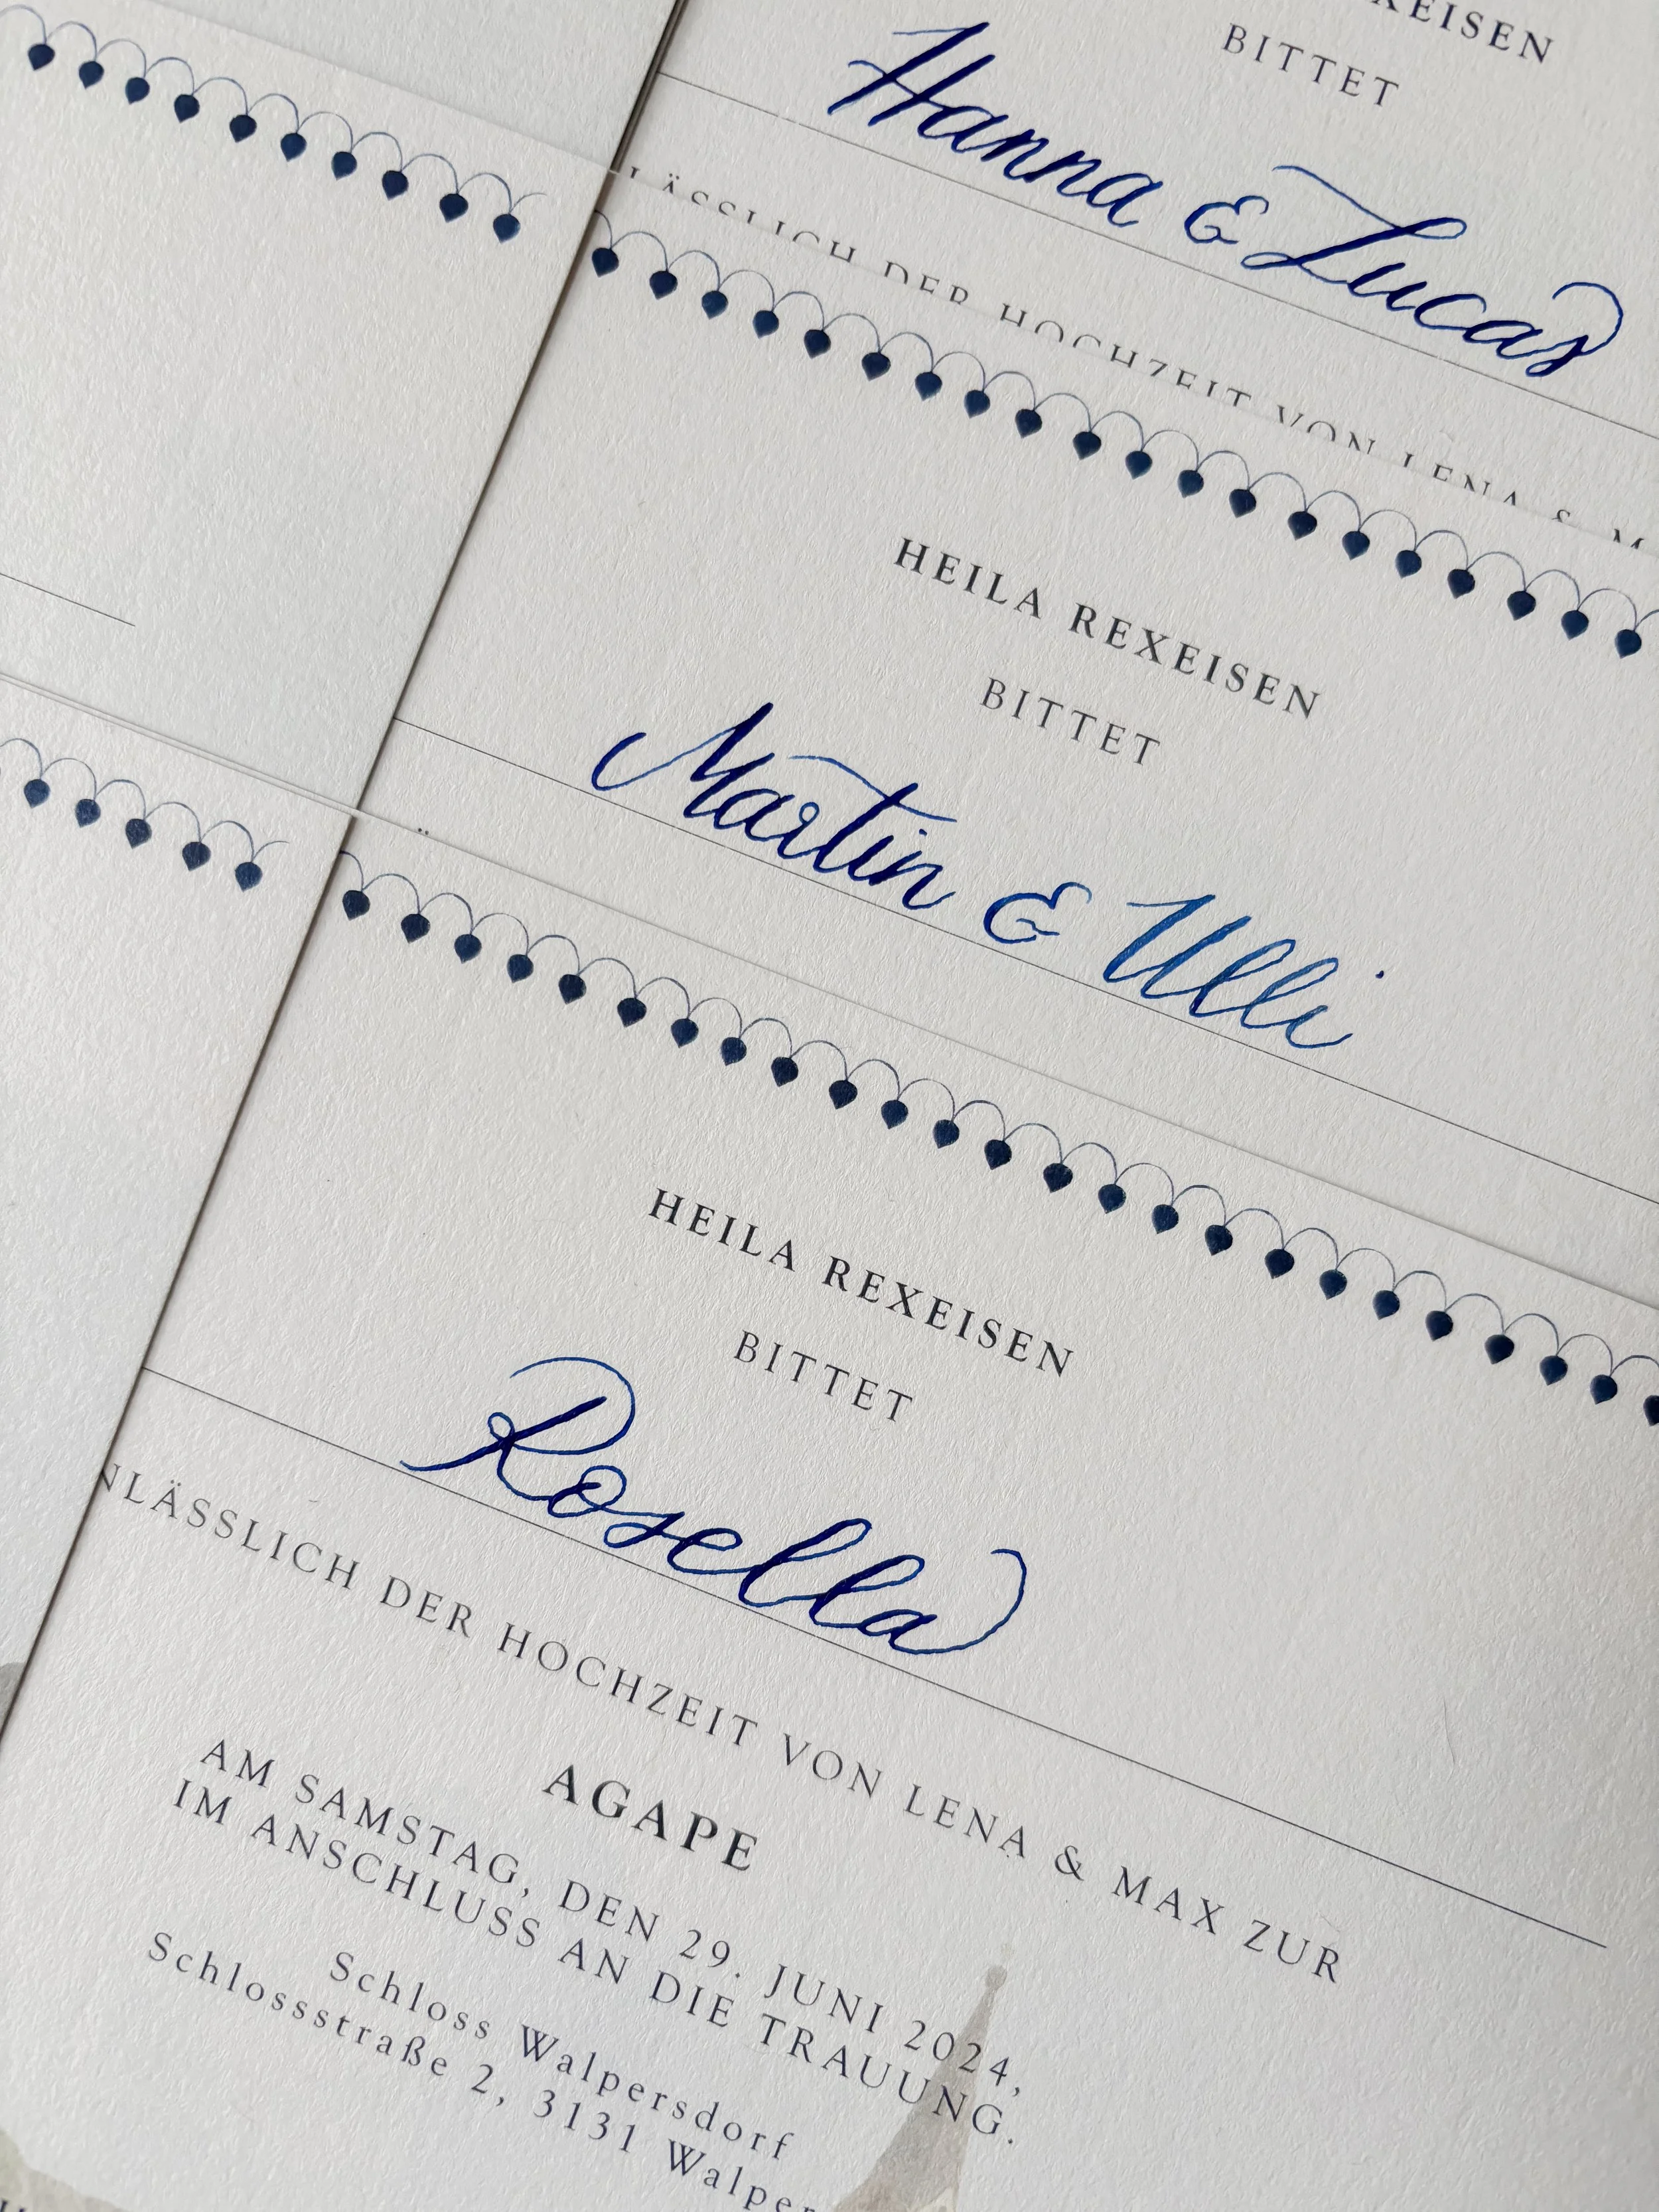 REXEISEN
BITTET
Hanna & Lucas
LÄSSLICH DER HOCHZEIT VON LENA & M
HEILA REXEISEN
BITTET
Martin & Ulli
HEILA REXEISEN
BITTET
Rosella
NLÄSSLICH DER HOCHZEIT VON LENA & MAX ZUR
AGAPE
AM SAMSTAG, DEN 29. JUNI 2024,
IM ANSCHLUSS AN DIE TRAUUNG.
Schloss Walpersdorf
Schlossstraße 2, 3131 Walper